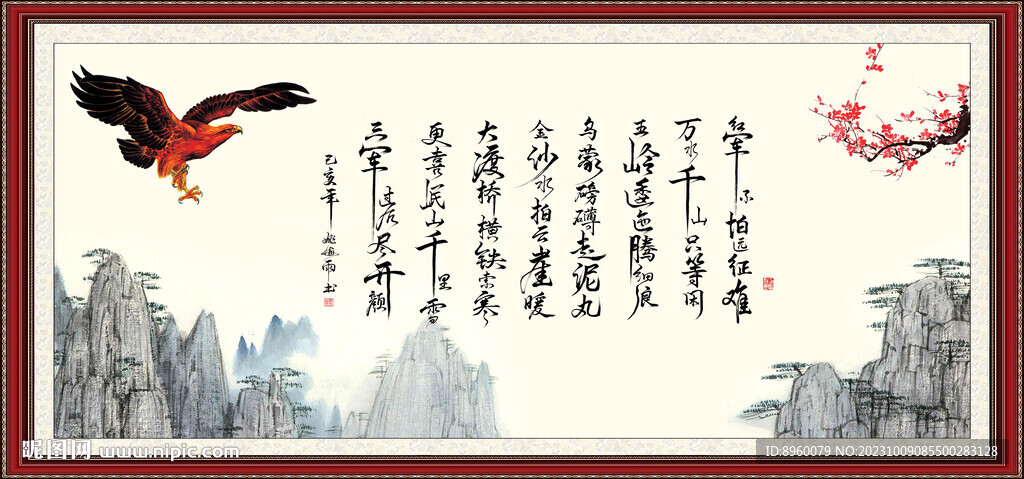 红军不怕远征难
万水千山只等闲
五岭逶迤腾细浪
乌蒙磅礴走泥丸
金沙水拍云崖暖
大渡桥横铁索寒
更喜岷山千里雪
三军过后尽开颜
己亥年 雨书
昵图网 www.nipic.com
ID:8960079 NO:20231009085500283128